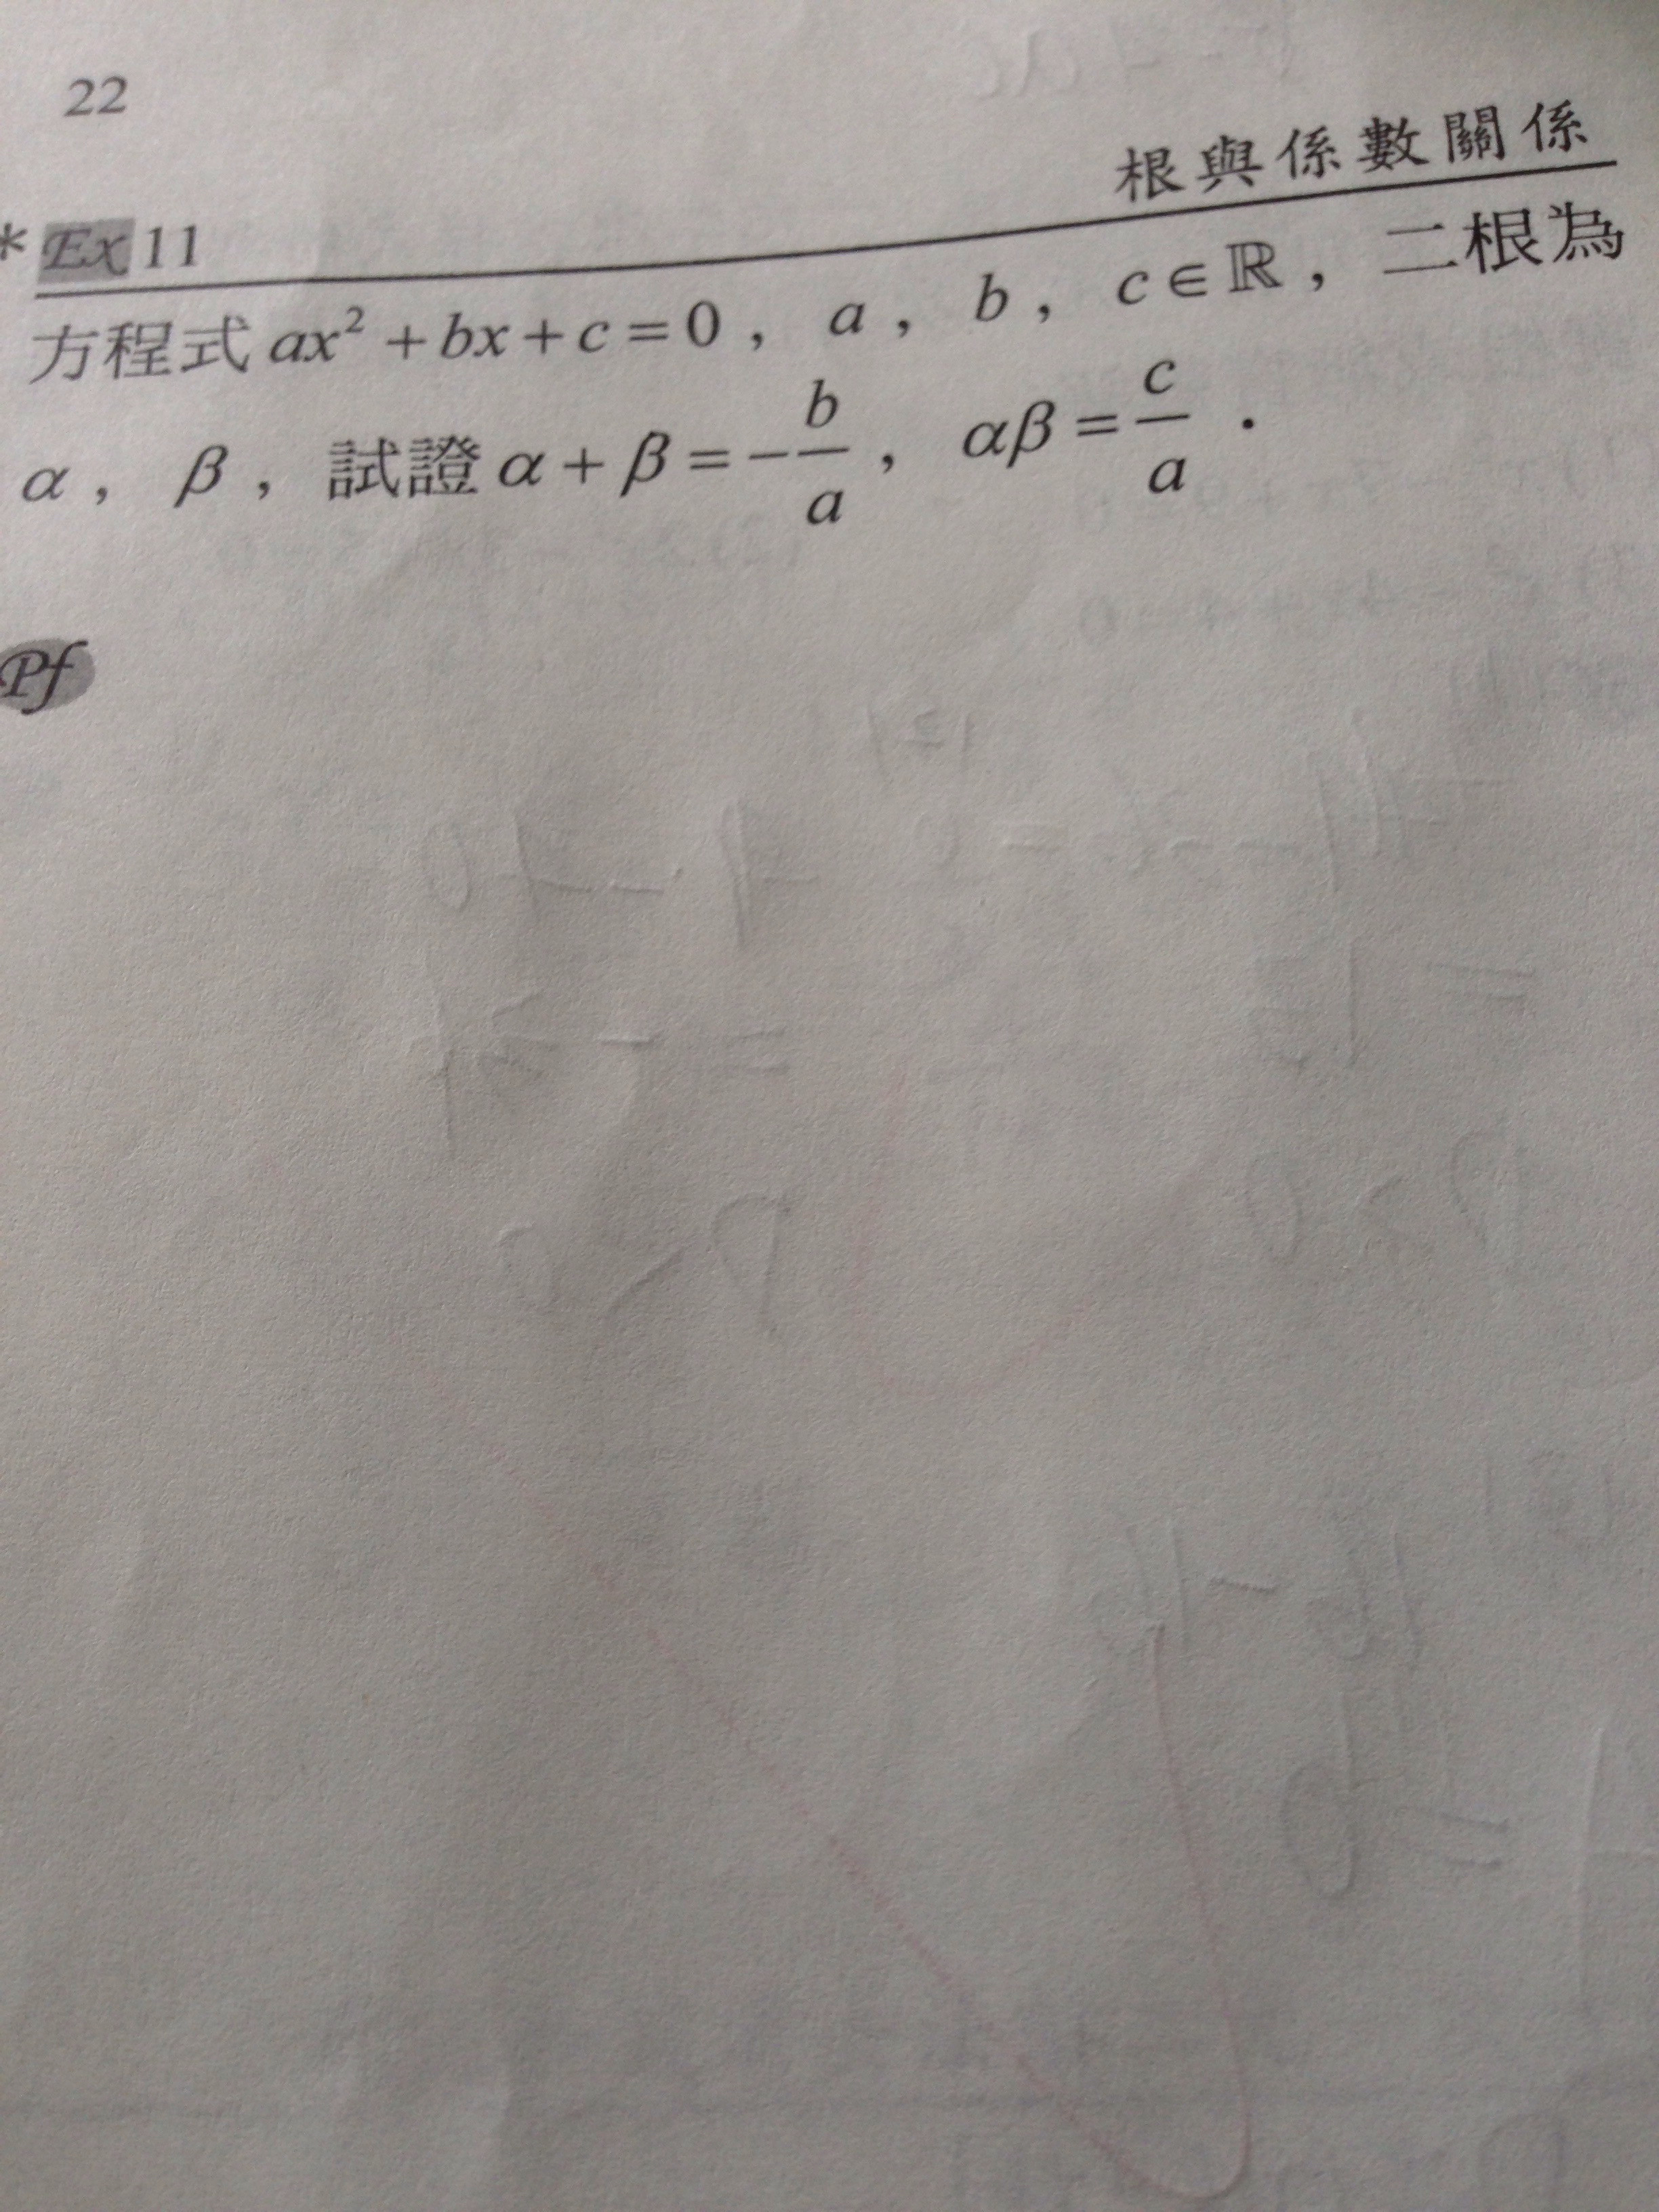 22
根與係數關係
* Ex 11
方程式 ax² + bx + c = 0 , a , b , c ∈ ℝ , 二根為
α , β , 試證 α + β = −b/a , αβ = c/a .
Pf